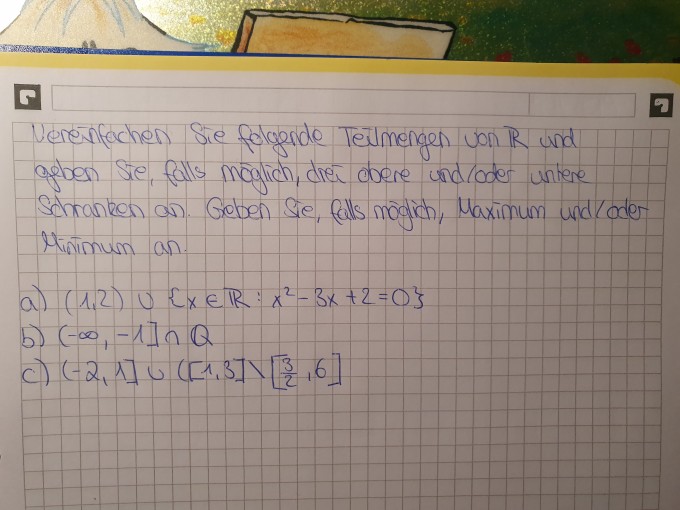 Vereinfachen Sie folgende Teilmengen von ℝ und
geben Sie, falls möglich, drei obere und/oder untere
Schranken an. Geben Sie, falls möglich, Maximum und/oder
Minimum an.
a) (1,2) ∪ {x ∈ ℝ : x² - 3x + 2 = 0}
b) (-∞, -1] ∩ ℚ
c) (-2, 1] ∪ ([1,3] \ [3/2, 6]